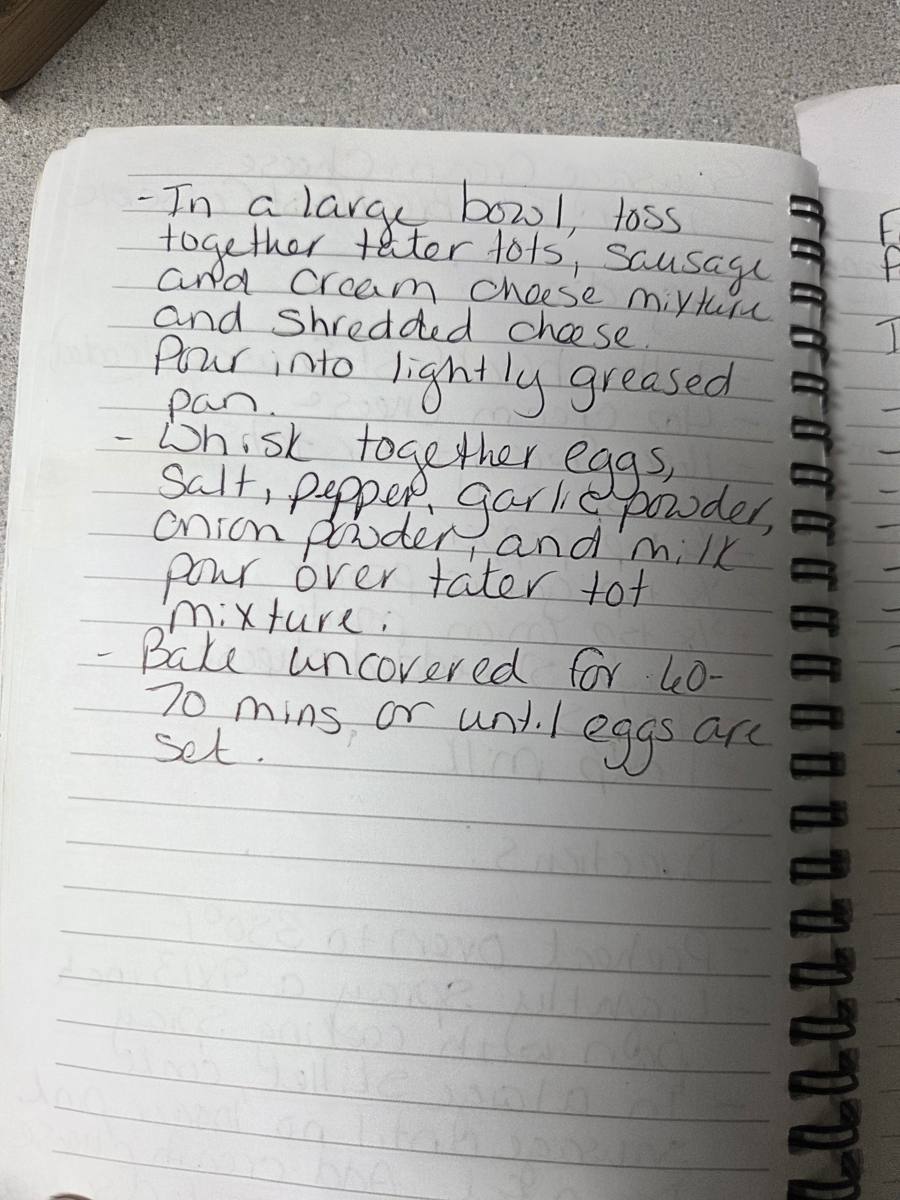 - In a large bowl, toss
together tater tots, sausage
and cream cheese mixture
and shredded cheese.
Pour into lightly greased
pan.
- Whisk together eggs,
Salt, pepper, garlic powder,
onion powder, and milk
pour over tater tot
mixture.
- Bake uncovered for 60-
70 mins, or until eggs are
set.